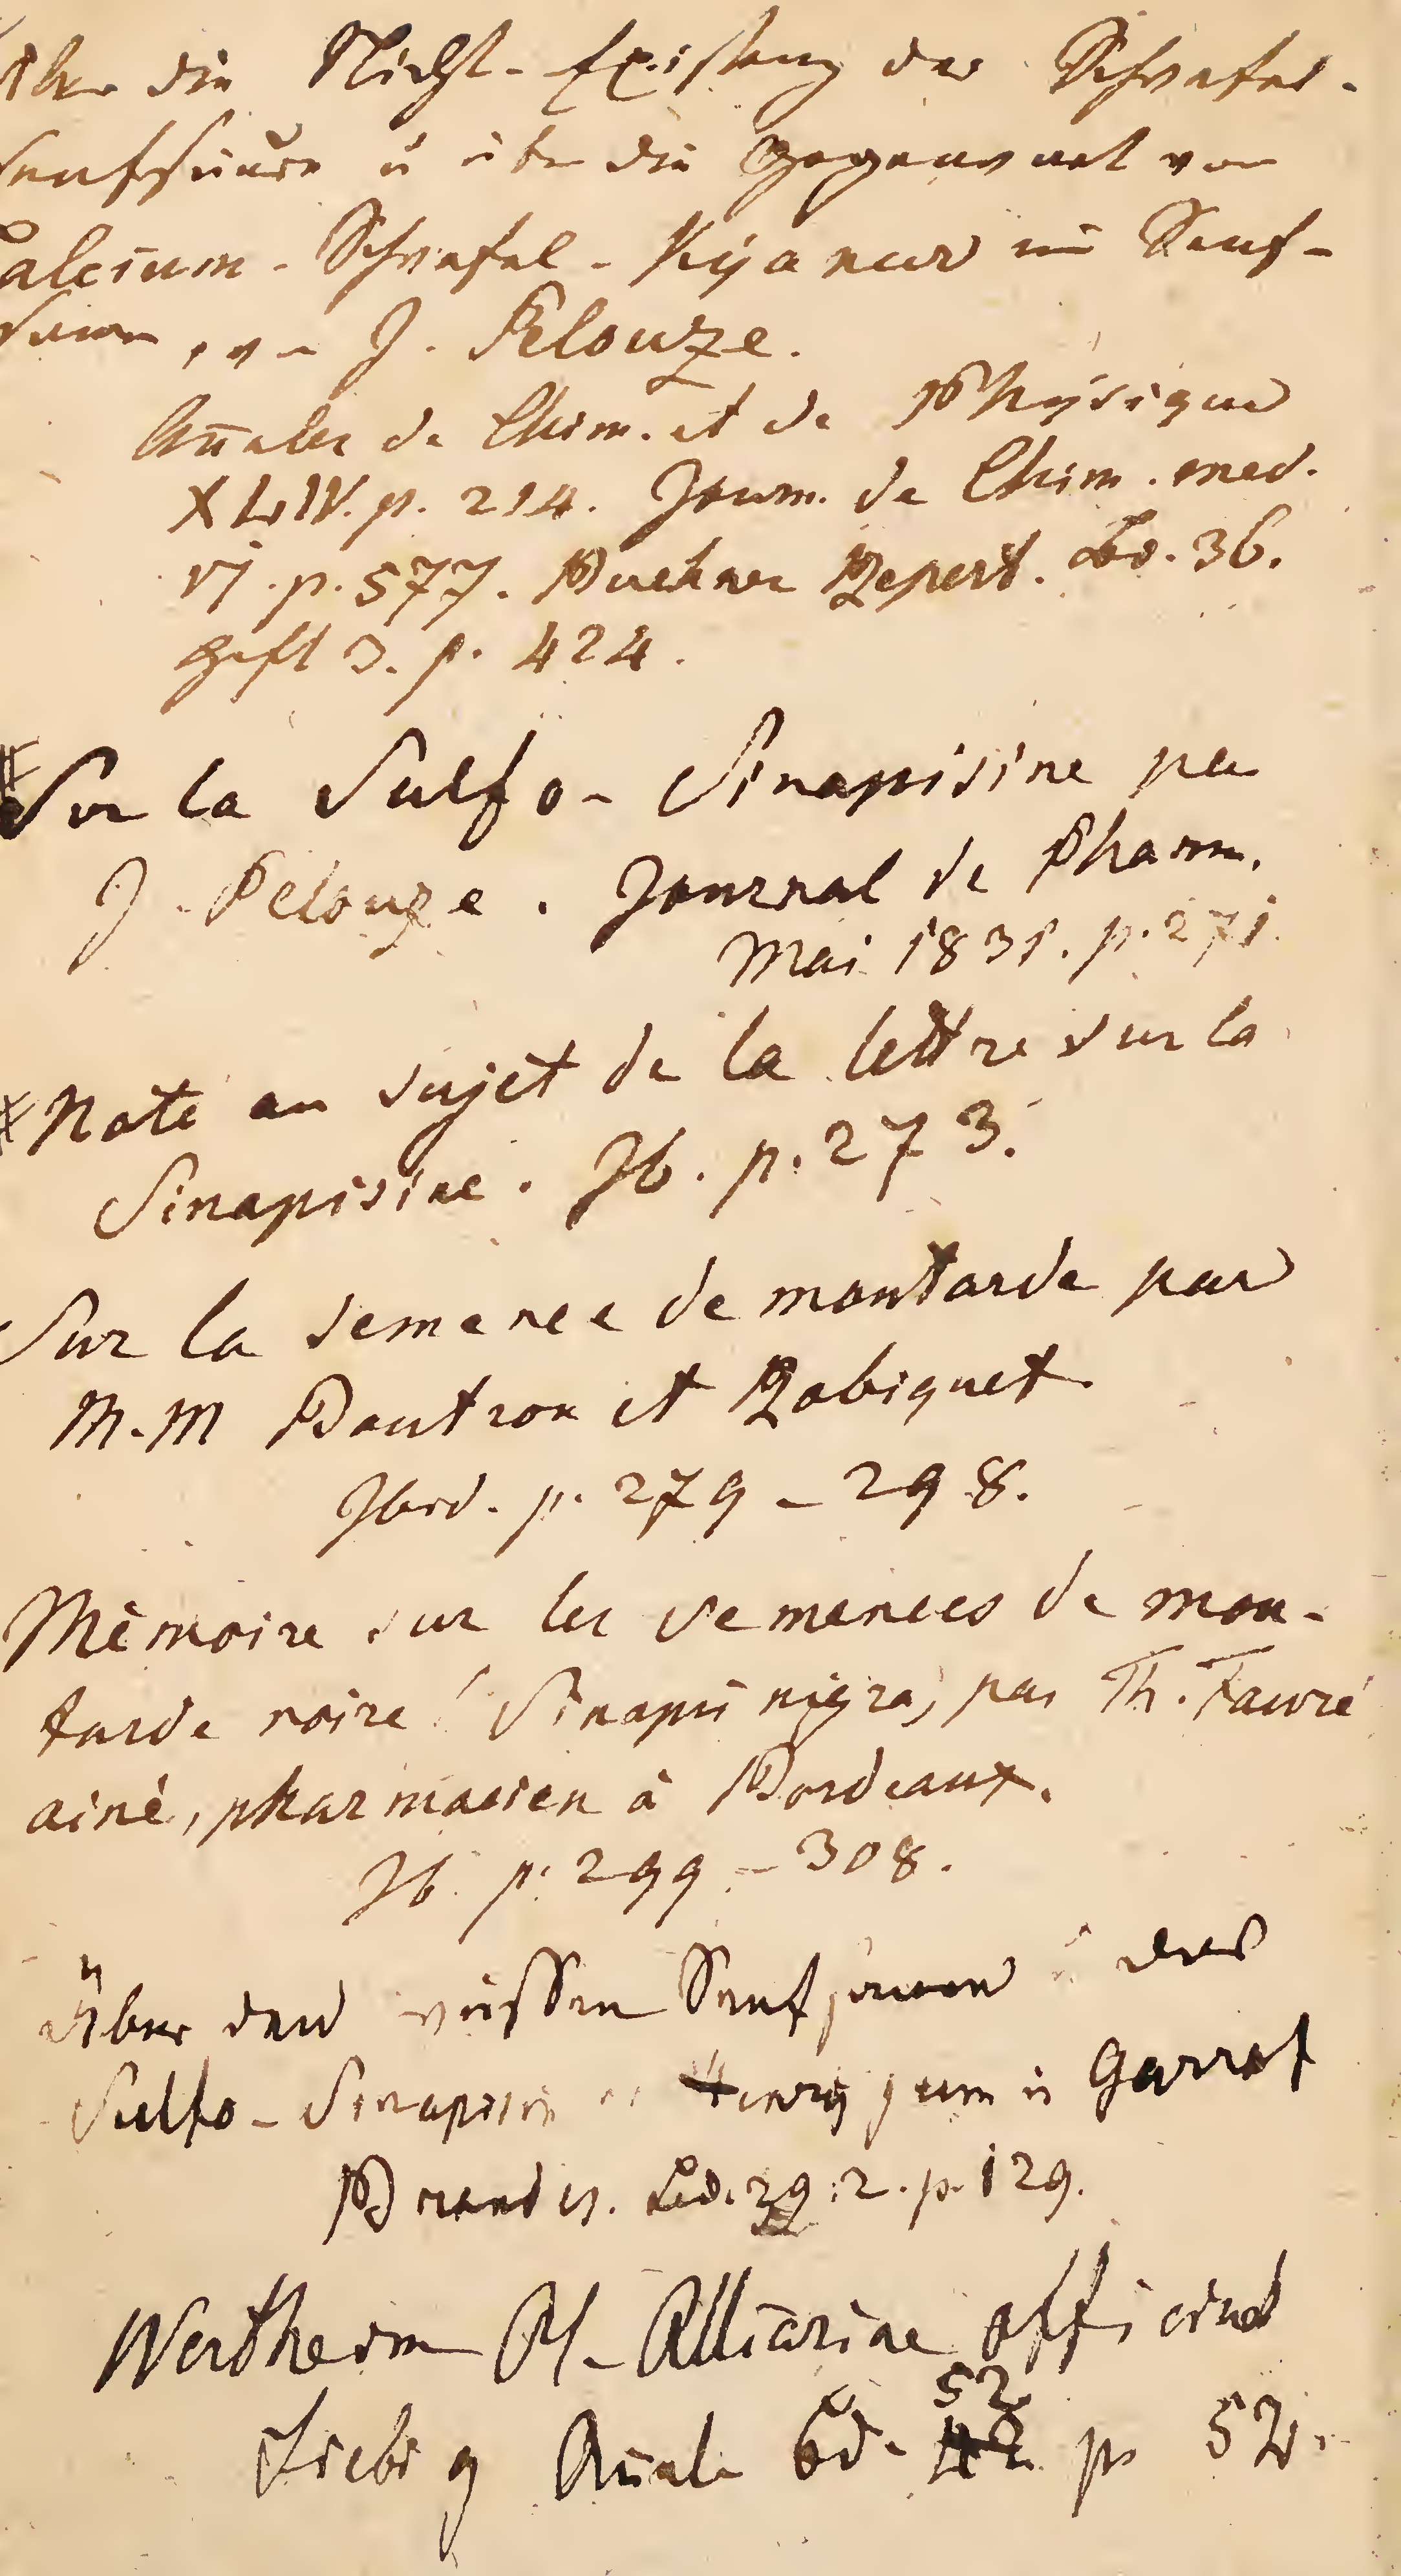 Über die Nicht-Existenz der Schwefel-
senfsäure u über die Gegenwart von
Calcium-Schwefel-Kyanur im Senf-
samen, von J. Pelouze.
Añales de Chim. et de Physique
XLIV. p. 214. Journ. de Chim. med.
VI. p. 577. Buchner Repert. Bd. 36.
Heft 3. p. 424.
Sur la Sulfo-Sinapisine par
J. Pelouze. Journal de Pharm.
Mai 1831. p. 271.
Note au sujet de la lettre sur la
Sinapisine. Ib. p. 273.
Sur la semence de moutarde par
M.M Boutron et Robiquet
Ibid. p. 279-298.
Mémoire sur les semences de mou-
tarde noire (Sinapis nigra) par Th. Fauré
ainé, pharmacien à Bordeaux.
Ib. p. 299-308.
Über den weissen Senfsamen u das
Sulfo-Sinapisin v. Henry jun u Garrot
Brandes. Bd. 39. 2. p. 129.
Wertheim Ol. Alliariae officinal
Liebig Añale Bd. 52 p. 52.